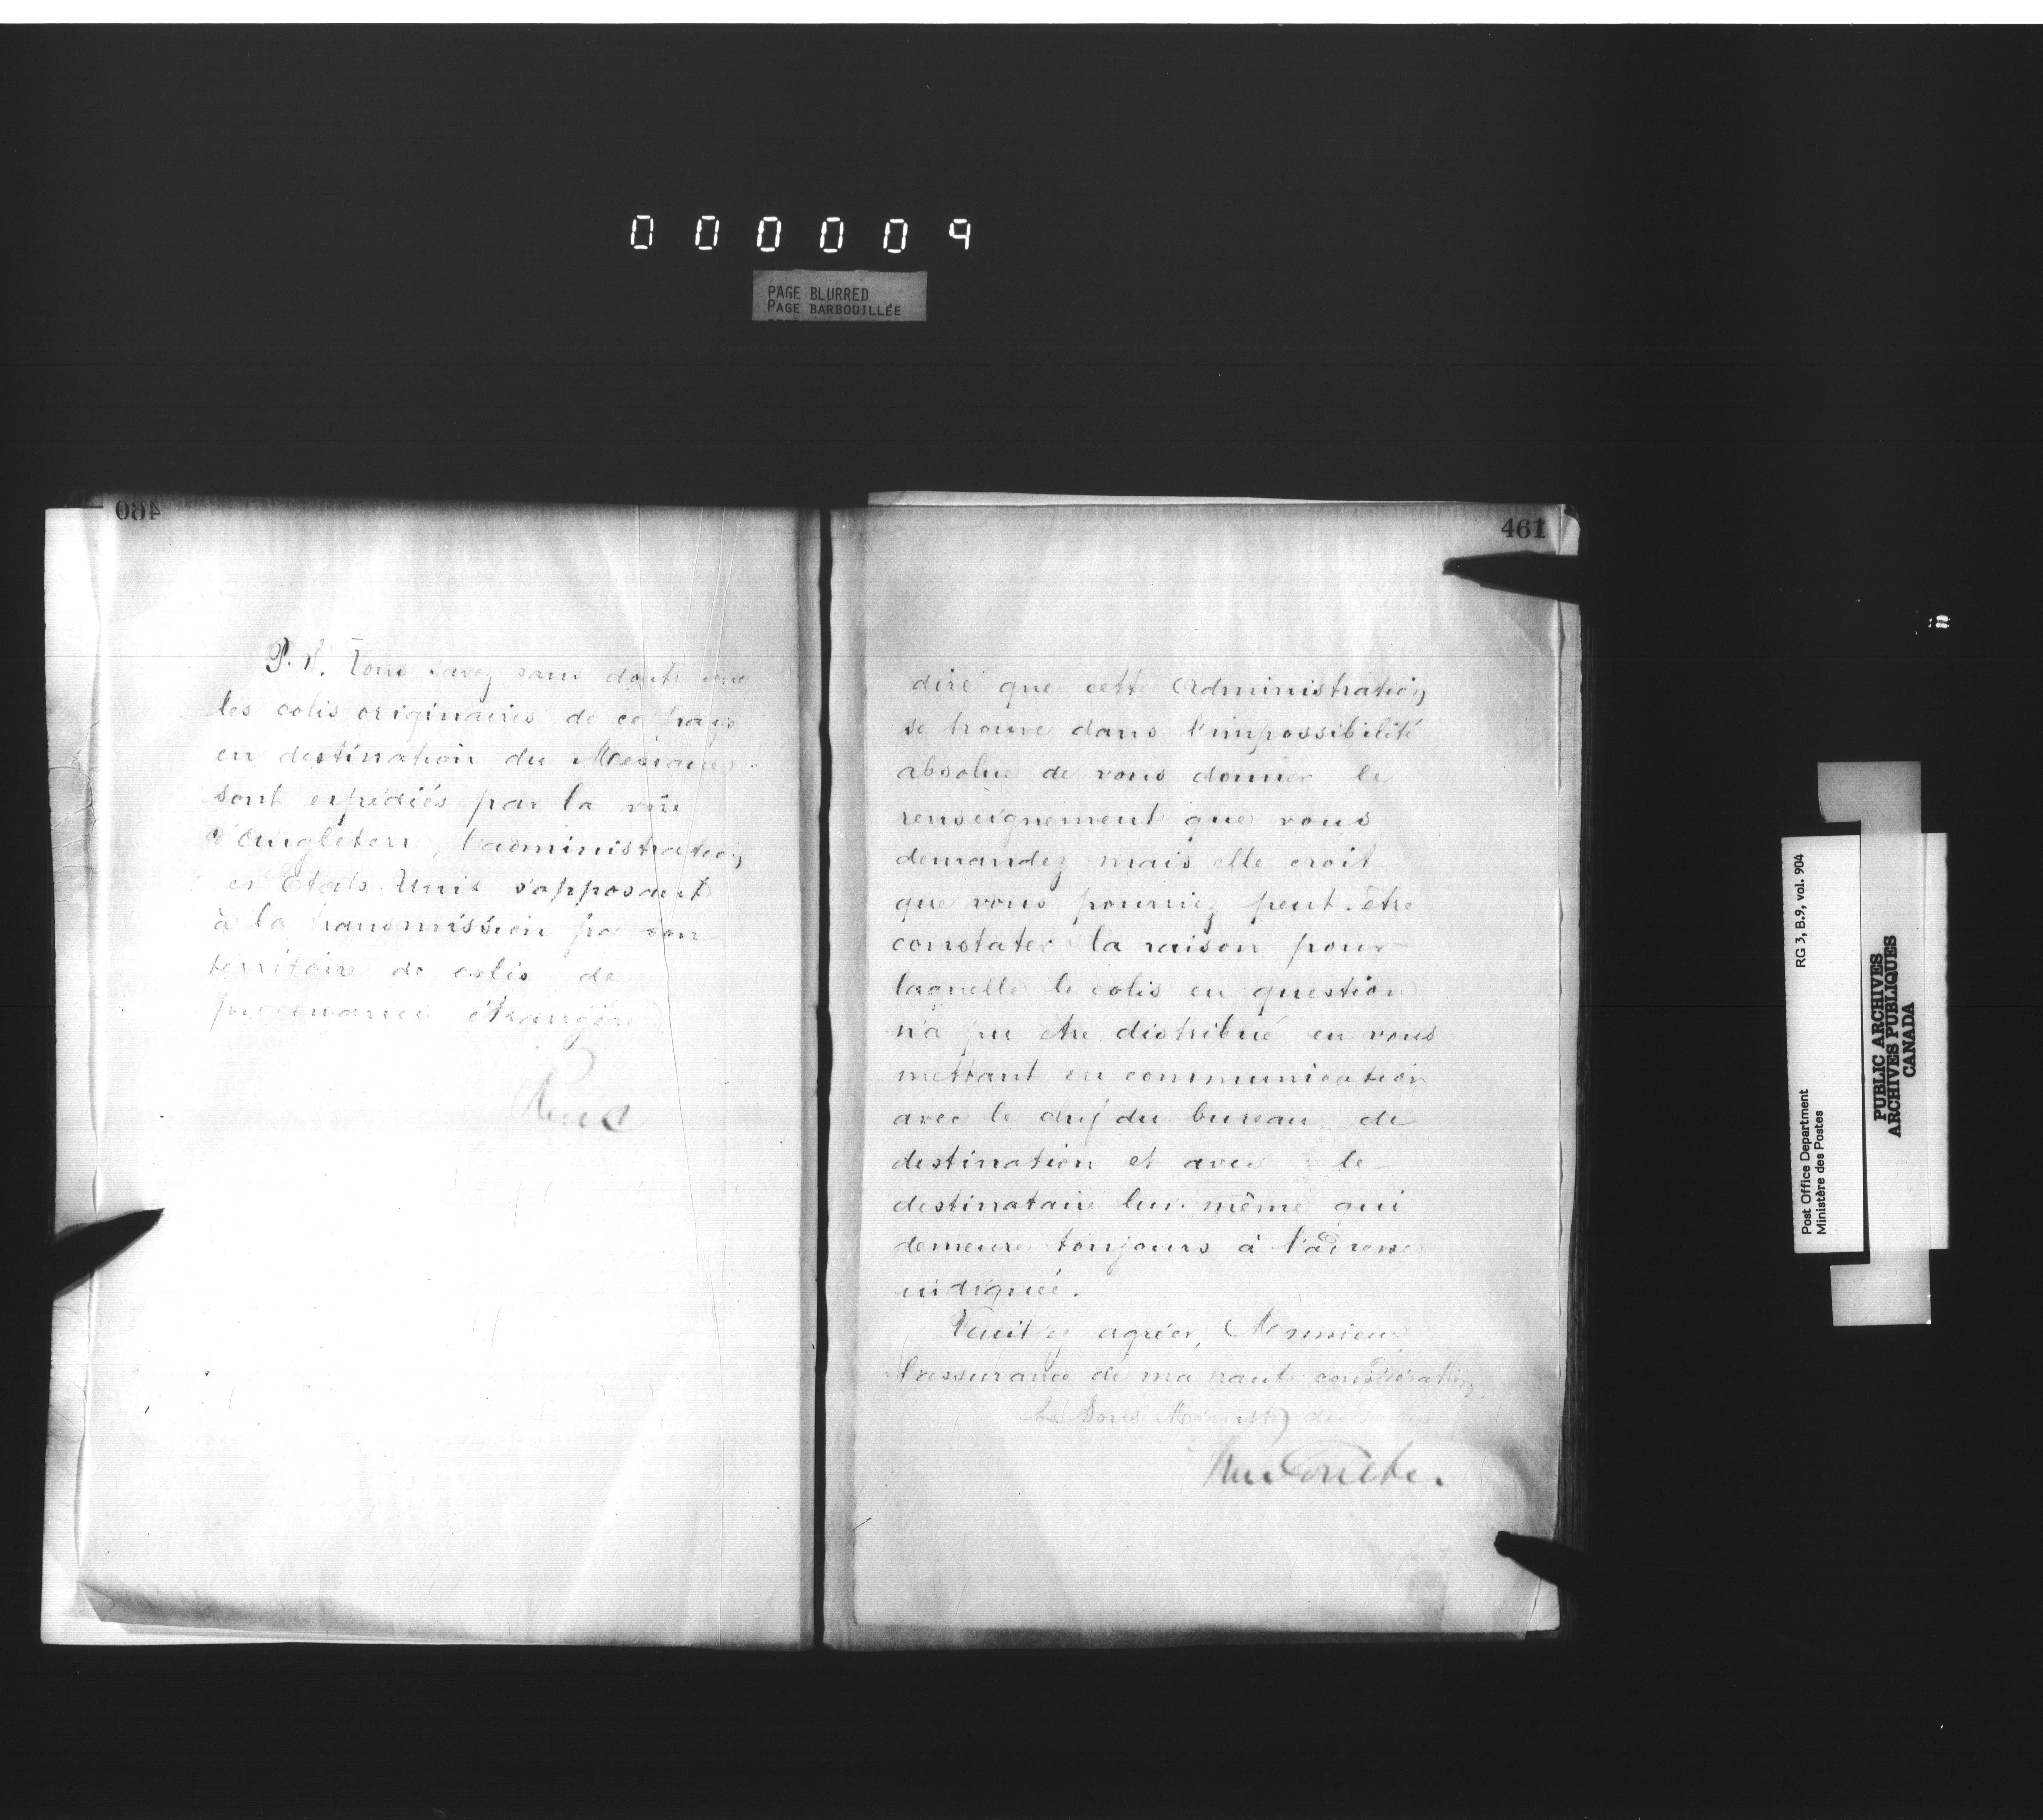 000009
PAGE BLURRED
PAGE BARBOUILLÉE
460
P.S. Vous savez sans doute que
les colis originaires de ce pays
en destination du Mexique
sont expédiés par la voie
d'Angleterre, l'administration
es États-Unis s'opposant
à la transmission par son
territoire de colis de
provenance étrangère.
461
dire que cette Administration
se trouve dans l'impossibilité
absolue de vous donner le
renseignement que vous
demandez mais elle croit
que vous pourriez peut-être
constater la raison pour
laquelle le colis en question
n'a pu être distribué en vous
mettant en communication
avec le chef du bureau de
destination et avec le
destinataire lui-même qui
demeure toujours à l'adresse
indiquée.
Veuillez agréer, Monsieur
l'assurance de ma haute considération,
Le Sous Ministre des Postes
Coulter.
Post Office Department
Ministère des Postes
RG 3, B.9, vol. 904
PUBLIC ARCHIVES
ARCHIVES PUBLIQUES
CANADA